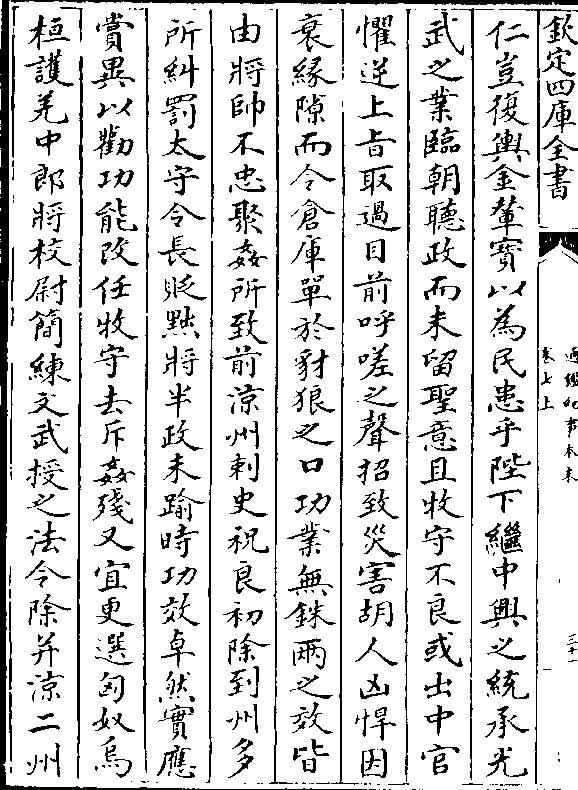 欽定四庫全書
通鑑紀事本末
卷七上
三十一
仁豈復輿金輦寳以為民患乎陛下繼中興之統承光
武之業臨朝聽政而未留聖意且牧守不良或出中官
懼逆上㫖取過目前呼嗟之聲招致災害胡人凶悍因
衰緣隙而令倉庫單於豺狼之口功業無銖兩之效皆
由將帥不忠聚姦所致前涼州刺史祝良初除到州多
所糾罰太守令長貶黜將半政未踰時功效卓然實應
賞異以勸功能改任牧守去斥姦殘又宜更選匈奴烏
桓護羌中郎將校尉簡練文武授之法令除并涼二州